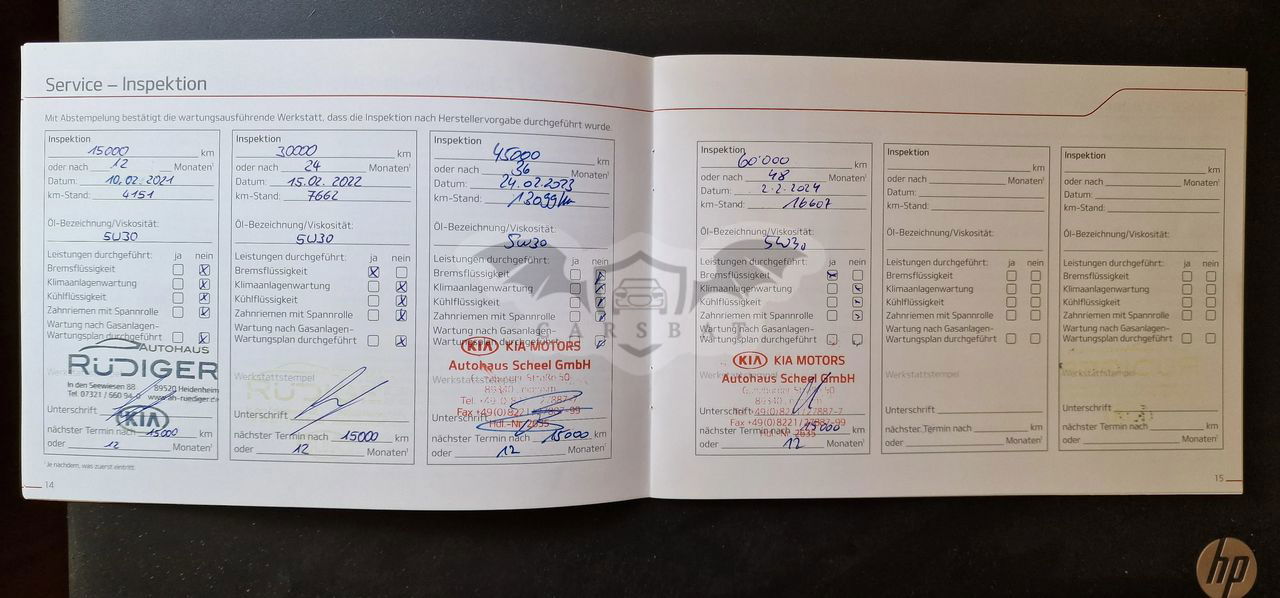 Service – Inspektion
Mit Abstempelung bestätigt die wartungsausführende Werkstatt, dass die Inspektion nach Herstellervorgabe durchgeführt wurde.
Inspektion
15000 km
oder nach 12 Monaten¹
Datum: 10.02.2021
km-Stand: 4151
Öl-Bezeichnung/Viskosität:
5W30
Leistungen durchgeführt: ja nein
Bremsflüssigkeit
Klimaanlagenwartung
Kühlflüssigkeit
Zahnriemen mit Spannrolle
Wartung nach Gasanlagen-
Wartungsplan durchgeführt
AUTOHAUS
RÜDIGER
In den Seewiesen 88 89520 Heidenheim
Tel. 07321 / 660 94-0 www.ah-ruediger.de
Unterschrift
KIA
nächster Termin nach 15000 km
oder 12 Monaten¹
¹Je nachdem, was zuerst eintritt
14
Inspektion
30000 km
oder nach 24 Monaten¹
Datum: 15.02.2022
km-Stand: 7662
Öl-Bezeichnung/Viskosität:
5W30
Leistungen durchgeführt: ja nein
Bremsflüssigkeit
Klimaanlagenwartung
Kühlflüssigkeit
Zahnriemen mit Spannrolle
Wartung nach Gasanlagen-
Wartungsplan durchgeführt
Werkstattstempel
Unterschrift
nächster Termin nach 15000 km
oder 12 Monaten¹
Inspektion
45000 km
oder nach 36 Monaten¹
Datum: 24.02.2023
km-Stand: 13099km
Öl-Bezeichnung/Viskosität:
5W30
Leistungen durchgeführt: ja nein
Bremsflüssigkeit
Klimaanlagenwartung
Kühlflüssigkeit
Zahnriemen mit Spannrolle
Wartung nach Gasanlagen-
Wartungsplan durchgeführt
KIA KIA MOTORS
Autohaus Scheel GmbH
Werkstattstempel
Unterschrift
Fax +49(0)8221
Hdl.-Nr. 2635
nächster Termin nach 15000 km
oder 12 Monaten¹
CARSBAT
Inspektion
60'000 km
oder nach 48 Monaten¹
Datum: 2.2.2024
km-Stand: 16607
Öl-Bezeichnung/Viskosität:
5W30
Leistungen durchgeführt: ja nein
Bremsflüssigkeit
Klimaanlagenwartung
Kühlflüssigkeit
Zahnriemen mit Spannrolle
Wartung nach Gasanlagen-
Wartungsplan durchgeführt
KIA KIA MOTORS
Autohaus Scheel GmbH
Werkstattstempel
Unterschrift
Hdl.-Nr. 2635
nächster Termin nach 15000 km
oder 12 Monaten¹
Inspektion
km
oder nach Monaten¹
Datum:
km-Stand:
Öl-Bezeichnung/Viskosität:
Leistungen durchgeführt: ja nein
Bremsflüssigkeit
Klimaanlagenwartung
Kühlflüssigkeit
Zahnriemen mit Spannrolle
Wartung nach Gasanlagen-
Wartungsplan durchgeführt
Werkstattstempel
Unterschrift
nächster Termin nach km
oder Monaten¹
Inspektion
km
oder nach Monaten¹
Datum:
km-Stand:
Öl-Bezeichnung/Viskosität:
Leistungen durchgeführt: ja nein
Bremsflüssigkeit
Klimaanlagenwartung
Kühlflüssigkeit
Zahnriemen mit Spannrolle
Wartung nach Gasanlagen-
Wartungsplan durchgeführt
Werkstattstempel
Unterschrift
nächster Termin nach km
oder Monaten¹
15
hp